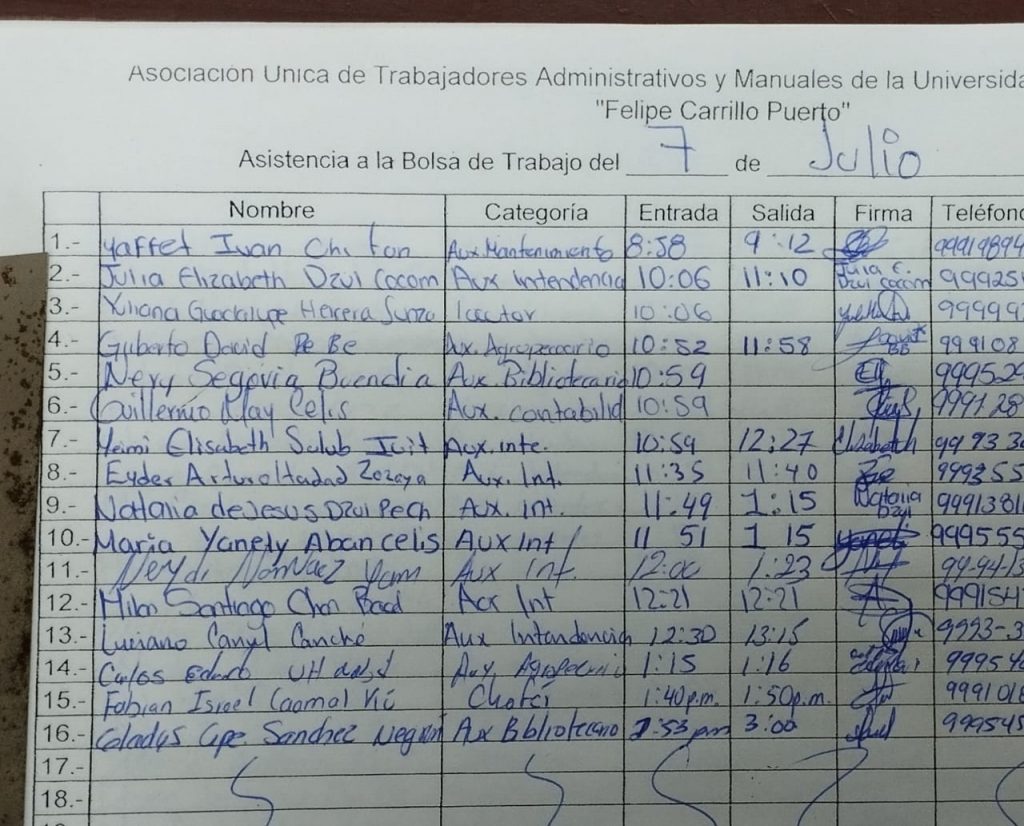 Asociación Unica de Trabajadores Administrativos y Manuales de la Universida
"Felipe Carrillo Puerto"
Asistencia a la Bolsa de Trabajo del 7 de Julio
Nombre Categoría Entrada Salida Firma Teléfono
1.- Yaffet Ivan Chi Tan Aux Mantenimiento 8:58 9:12 99919894
2.- Julia Elizabeth Dzul Cocom Aux intendencia 10:06 11:10 Julia E. Dzul Cocom 999259
3.- Guadalupe Herrera 10:06 99999
4.- David Pe Be Ax. Agropecuario 10:52 11:58 999108
5.- Nery Segovia Buendia Aux Bibliotecario 10:59 999529
6.- Guillermo May Celis Aux. contabilid 10:59 9991 28
7.- Yeimi Elisabeth Sulub Aux. inte. 10:59 12:27 Elizabeth 9993 3
8.- Eyder Arturo Zozaya Aux. Int. 11:35 11:40 999355
9.- Natalia de Jesus Dzul Pech Aux. int. 11:49 1:15 Natalia Dzul 9991381
10.- Maria Yanely Aban celis Aux Int 11 51 1 15 999555
11.- Narvaez Yam Aux Int. 12:00 1:23
12.- Santiago Chan Aux Int 12:21 12:21 999154
13.- Luciano Canul Canché Aux Intendencia 12:30 13:15 9993-3
14.- Carlos 1:15 1:16 99954
15.- Fabian Israel Caamal Chofer 1:40 p.m. 1:50 p.m. 9991018
16.- Gladys Gpe. Sanchez Negrón Aux Bibliotecario 2:53 pm 3:00 999545
17.-
18.-